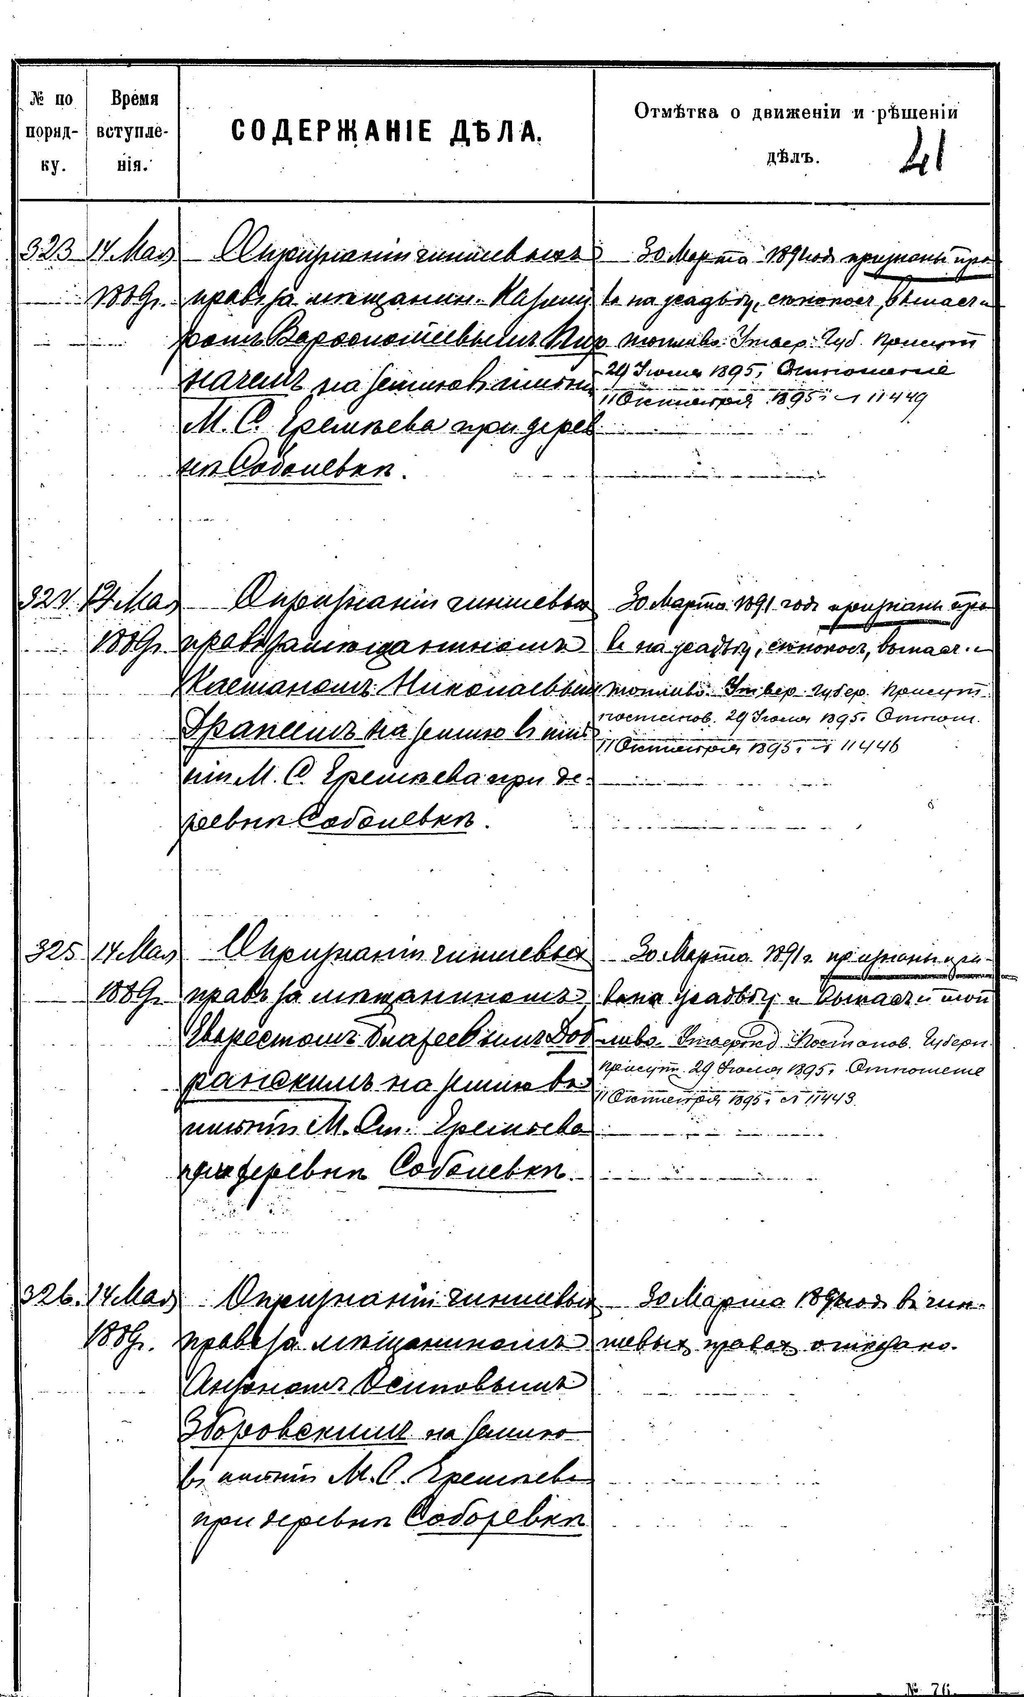 № по порядку.
Время вступленія.
СОДЕРЖАНІЕ ДѢЛА.
Отмѣтка о движеніи и рѣшеніи дѣлъ.
41
323
14 Мая
1889г.
О признаніи чиншевыхъ
правъ за мѣщанин. Казими
ромъ
на землю въ имѣніи
М. С. Еремѣева при дерев
нѣ Соболевкѣ.
30 Марта 1891 года признаны пра
ва на усадьбу, сѣнокосъ, выпасъ и
топливо. Утвер. Губ. Присут
29 Іюля 1895г. Отношеніе
11 Октября 1895г. № 11449
324
14 Мая
1889г.
О признаніи чиншевых
правъ за мѣщаниномъ
Каетаномъ Николаевым
на землю въ имѣ
ніи М. С. Еремѣева при де-
ревнѣ Соболевкѣ.
30 Марта 1891 года признаны пра
ва на усадьбу, сѣнокосъ, выпасъ и
топливо. Утвер. Губер. Присут.
постанов. 29 Іюля 1895г. Отнош.
11 Октября 1895г. № 11446
325
14 Мая
1889г.
О признаніи чиншевых
правъ за мѣщаниномъ
Еварестомъ Доб
ранскимъ на землю въ
имѣніи М. Ст. Еремѣева
при деревнѣ Соболевкѣ.
30 Марта 1891 г. признаны пра-
ва на усадьбу и выпасъ и топ
ливо Утвержд Постанов. Губерн.
Присут. 29 Іюля 1895г. Отношеніе
11 Октября 1895г. № 11443
326.
14 Мая
1889г.
О признаніи чиншевых
правъ за мѣщаниномъ
Антономъ Осиповымъ
Зборовскимъ на землю
въ имѣніи М. С. Еремѣева
при деревнѣ Соболевкѣ
30 Марта 1891 года въ чин-
шевыхъ правахъ отказано.
№ 76.